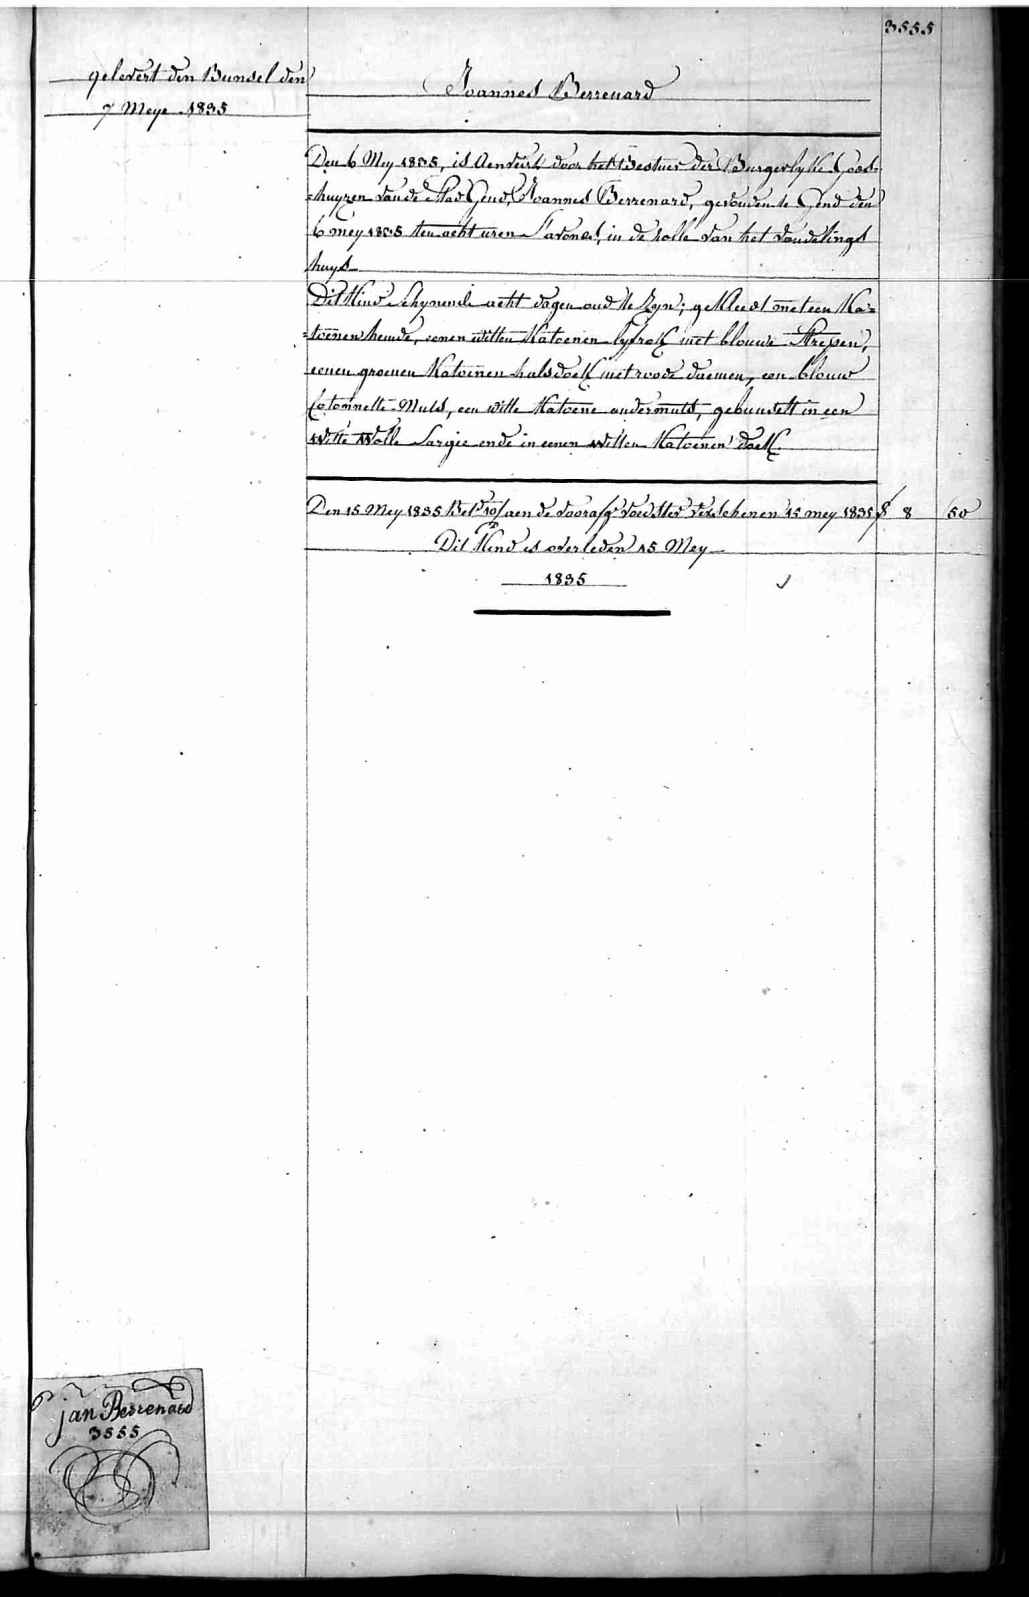 3555
gelevert den Bunsel den
7 Meye 1835
Joannes Berrenard
Den 6 Mey 1835, is Aenveirt door het Bestuer der Burgerlyke Gods-
=huyzen van de Stad Gend, Joannes Berrenard, gevonden te Gend den
6 mey 1835 ten acht uren s'avonds, in de rolle van het vondelings
huys
Dit Kind schynende acht dagen oud te Zyn; gekleed met een Ka=
=toenen hemde, eenen witten Katoenen lyfrok met blouwe Strepen,
eenen groenen Katoenen halsdoek met roode daemen, een blouw
Cotonnette Muts, een witte Katoene ondermuts, gebunselt in een
witte Wolle Sargie ende in eenen witten Katoenen doek.
Den 15 Mey 1835 Bet aen de vooraf voedster verschenen 15 mey 1835 f 8 50
Dit Kind is overleden 15 Mey
1835
jan Berrenard
3555